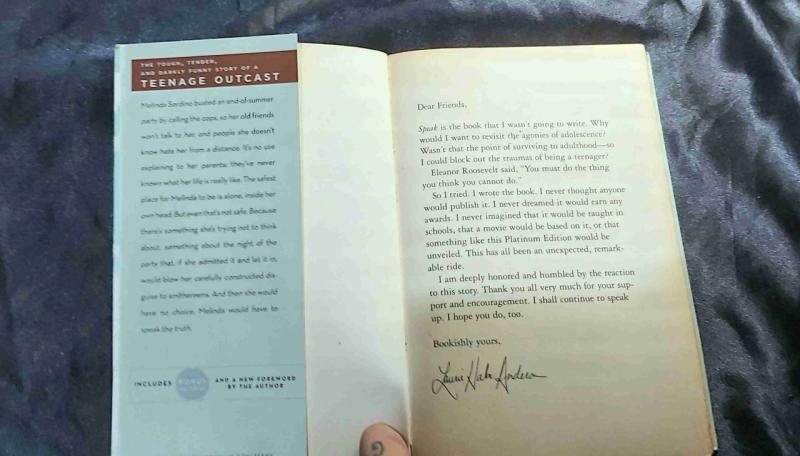 THE TOUGH, TENDER,
AND DARKLY FUNNY STORY OF A
TEENAGE OUTCAST
Melinda Sordino busted an end-of-summer
party by calling the cops, so her old friends
won't talk to her, and people she doesn't
know hate her from a distance. It's no use
explaining to her parents; they've never
known what her life is really like. The safest
place for Melinda to be is alone, inside her
own head. But even that's not safe. Because
there's something she's trying not to think
about, something about the night of the
party that, if she admitted it and let it in,
would blow her carefully constructed dis-
guise to smithereens. And then she would
have no choice. Melinda would have to
speak the truth.
INCLUDES BONUS AND A NEW FOREWORD
BY THE AUTHOR
Dear Friends,
Speak is the book that I wasn't going to write. Why
would I want to revisit the agonies of adolescence?
Wasn't that the point of surviving to adulthood—so
I could block out the traumas of being a teenager?
Eleanor Roosevelt said, "You must do the thing
you think you cannot do."
So I tried. I wrote the book. I never thought anyone
would publish it. I never dreamed it would earn any
awards. I never imagined that it would be taught in
schools, that a movie would be based on it, or that
something like this Platinum Edition would be
unveiled. This has all been an unexpected, remark-
able ride.
I am deeply honored and humbled by the reaction
to this story. Thank you all very much for your sup-
port and encouragement. I shall continue to speak
up. I hope you do, too.
Bookishly yours,
Laurie Halse Anderson